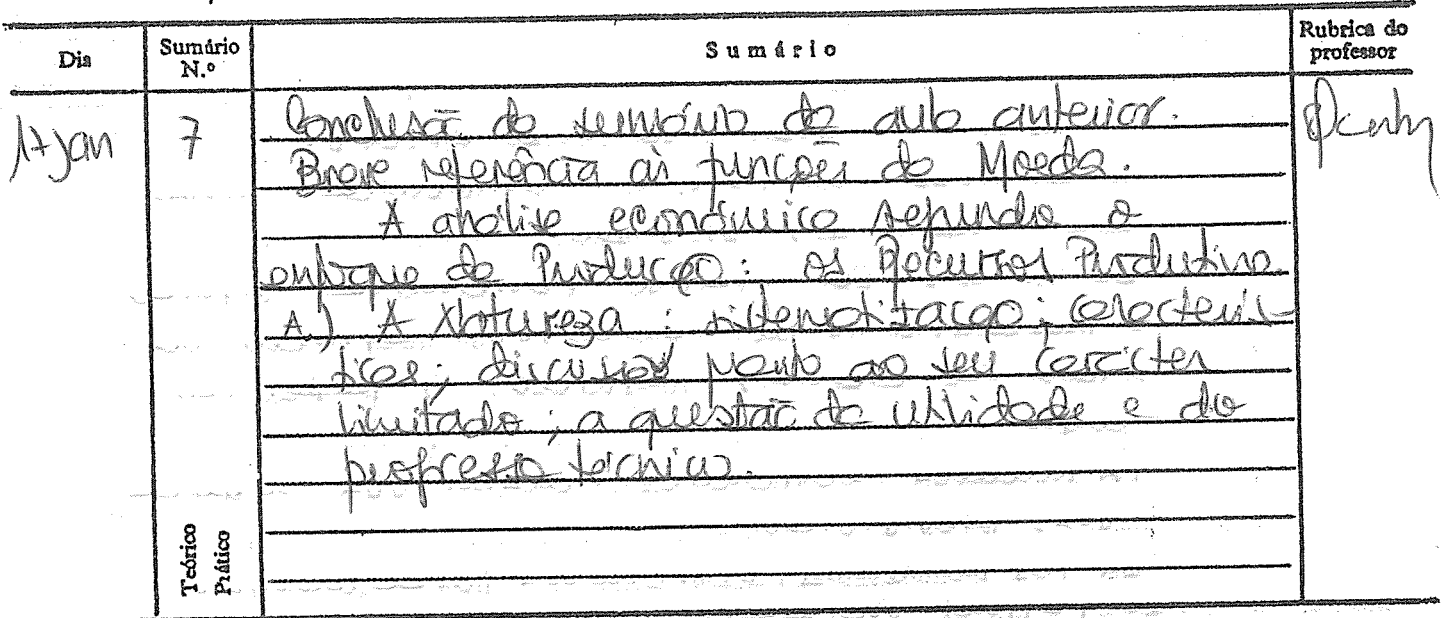 Dia
Sumário N.º
Sumário
Rubrica do professor
17 Jan
7
Conclusão do sumário da aula anterior.
Breve referência às funções da Moeda.
A análise económica segundo o
enfoque da Produção: os Recursos Produtivos
A) A Natureza: sistematização; caracterís-
ticas; discussão quanto ao seu carácter
limitado; a questão da utilidade e do
progresso técnico.
Teórico
Prático